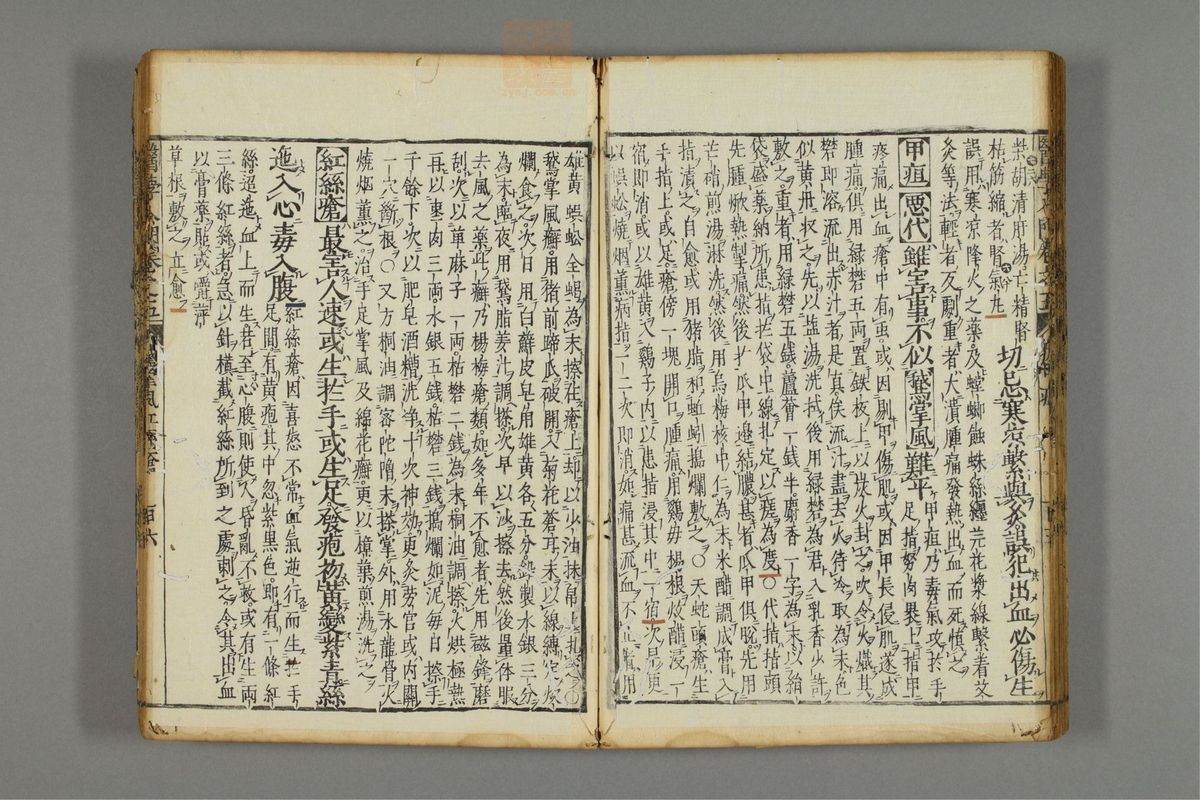 柴胡清肝湯亡精腎
枯筋縮者腎氣丸 切忌寒凉繫與灸誤犯出血必傷生
誤用寒凉降火之藥及螳蜋蝕蛛絲纏芫花漿線繫者艾
灸等法輕者反劇重者大潰腫痛發熱出血而死慎之
甲疽 惡代 雖害事不似 鵝掌風難平 甲疽乃毒氣攻於手足指努肉裹上指甲
疼痛出血瘡中有虫或因剔甲傷肌或因甲長侵肌遂成
腫痛俱用綠礬五兩置鉄板上以炭火封之吹令火熾其
礬即溶流出赤汁者是真俟流汁盡去火待冷取為末色
似黃丹收之先以塩湯洗拭後用綠礬為君入乳香少許
敷之重者用綠礬五錢蘆薈一錢半麝香一字為末以絹
袋盛藥納所患指於袋中線扎定以瘥為度○代指指頭
先腫焮熱掣痛然後於爪甲邊結膿甚者爪甲俱脫先用
芒硝煎湯淋洗然後用烏梅核中仁為末米醋調成膏入
指漬之自愈或用猪脂和蚯蚓搗爛敷之○天蛇頭瘡生
手指上或足瘡傍一塊開口腫痛用鷄毋楊根炆醋浸一
宿即消或以雄黃入鷄子內以患指浸其中一宿次早更
以蜈蚣燒烟薰病指一二次即消如痛甚流血不止者用
雄黃蜈蚣全蝎為末擦在瘡上却以少油抹帛上扎之○
鵞掌風癬用猪前蹄爪破開入菊花蒼耳末以線縛定炆
爛食之次日用白蘚皮皂角雄黃各五分鉛製水銀三分
為末臨夜用鵞脂姜汁調搽次早以沙擦去然後量体服
去風之藥此癬乃楊梅瘡類如多年不愈者先用磁鋒磨
刮次以萆麻子一両枯礬二錢為末桐油調搽火烘極熱
再以速肉三両水銀五錢枯礬三錢搗爛如泥每日擦手
千餘下次以肥皂酒糟洗净十次神効更灸勞宮或內關
一穴斷根○又方桐油調密陀僧末搽掌外用水龍骨火
燒烟薰之治手足掌風及綿花癬更以樟葉煎湯洗之
紅絲瘡 最害人速或生於手或生足發疱初黃變紫青絲
迤入心毒入腹 紅絲瘡因喜怒不常血氣逆行而生於手足間有黃疱其中忽紫黑色即有一條紅
絲迢迤血上而生若至心腹則使人昏亂不救或有生両
三條紅絲者急以針橫截紅絲所到之處刺之令其出血
以膏藥貼或嚼萍
草根敷之立愈
百六